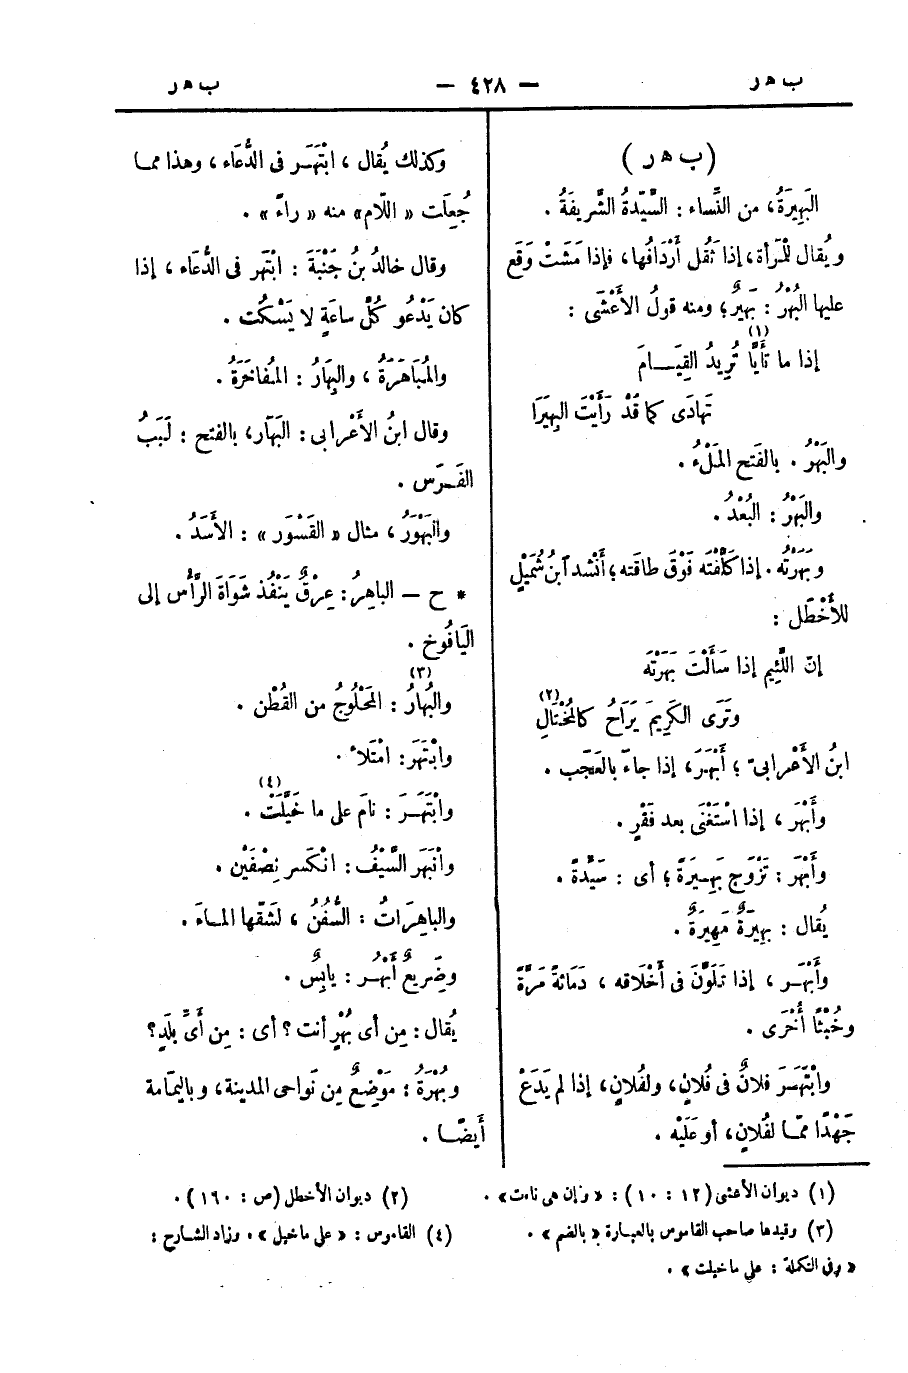 ب هر — ٤٢٨ — ب هر
(ب هر)
البَهِيرَةُ، من النِّساء : السَّيِّدةُ الشَّرِيفَةُ .
ويُقال للْمَرأة، إذا ثَقُل أَرْدَافُها، فإذا مَشَتْ وَقَع
عليها البُهْرُ : بَهِيرٌ؛ ومنه قولُ الأَعْشَى :
إذا ما تَأَيَّا تُرِيدُ القِيَــامَ (١)
تَهَادَى كما قَدْ رَأَيْتَ البَهِيرَا
والبَهْرُ . بالفَتح المَلْءُ .
والبَهْرُ : البُعْدُ .
وبَهَرْتُه . إذا كَلَّفْتَه فَوْقَ طاقته؛ أَنْشد ٱبنُ شُمَيْلٍ
للأَخْطَل :
إنّ اللَّئِيم إذا سَأَلْتَ بَهَرْتَه
وتَرَى الكَرِيمَ يَرَاحُ كالمُخْتَالِ (٢)
ابنُ الأَعْرابىّ ؛ أَبْهَرَ، إذا جاءَ بالعَجَب .
وأَبْهَر ، إذا اسْتَغْنَى بعد فَقْرٍ .
وأَبْهَر : تَزْوّج بَهِــيرَةً؛ أى : سَيِّدةً .
يُقال : بهِيرَةٌ مَهِيرَةٌ .
وأَبْهَــر ، إذا تَلَوَّنَ فى أَخْلاقه ، دَمَاثةً مَرَّةً
وخُبْثًا أُخْرَى .
وابْتَهَــرَ فلانٌ فى فُلانٍ، ولفُلانٍ، إذا لم يَدَعْ
جَهْدًا ممّا لفُلانٍ، أو عَلَيْه .
وكذلك يُقال ، ابْتَهَــر فى الدُّعَاء ، وهذا ممــا
جُعِلَت « اللّام» منه « راءً » .
وقال خالدُ بنُ جَنْبَةَ : ابْتَهَر فى الدُّعَاء ، إذا
كان يَدْعُو كُلَّ ساعَةٍ لا يَسْكُت .
والمُبَاهَرَةُ ، والبِهَارُ : المُفاخَرَةُ .
وقال ابنُ الأَعْرابى : البَهَار، بالفتح : لَبَبُ
الفَــرَس .
والبَهْوَرُ ، مثال « القَسْوَر » : الأَسَدُ .
* ح — الباهِرُ : عِرْقٌ يَنْفُذ شَوَاةَ الرَّأْس إلى
اليَافُوخ .
والبُهارُ (٣) : المَحْلُوجُ من القُطْن .
وابْتَهَر: امْتَلأ .
وابْتَهَــرَ : نامَ على ما خَيَّلَتْ (٤) .
وانْبَهَر السَّيْفُ : انْكَسر نِصْفَيْن .
والباهِرَاتُ : السُّفُنُ ، لشَقّها المــاءَ .
وضَرِيعٌ أَبْهَــر : يابِسٌ .
يُقال : مِن أى بُهْرٍ أنت ؟ أى : مِن أَىِّ بلَدٍ ؟
وبُهْرَةُ : مَوْضِعٌ مِن نَواحى المدينة ، وباليمَامة
أَيضًــا .
(١) ديوان الأعشى (١٢ : ١٠) : « وإن هى ناءت» .
(٢) ديوان الأخطل (ص : ١٦٠) .
(٣) وقيدها صاحب القاموس بالعبارة « بالضم » .
(٤) القاموس : « على ما خيل » . وزاد الشارح :
« وفى التكملة : على ما خيلت » .